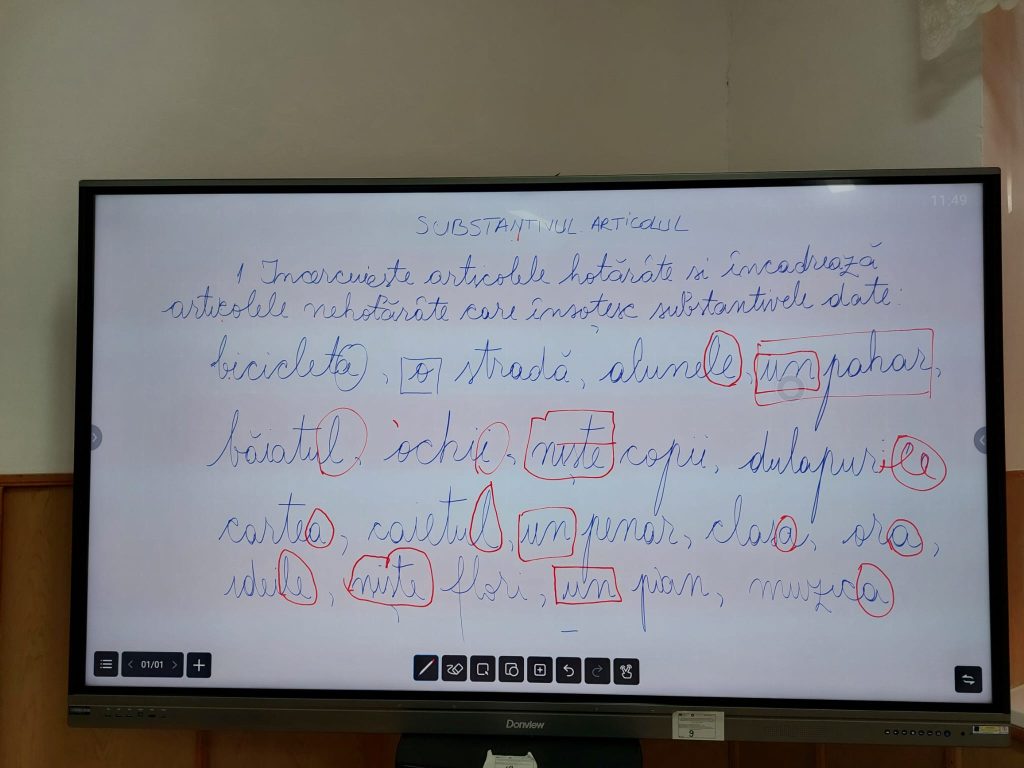 11:49
SUBSTANTIVUL. ARTICOLUL
1 Incercuiește articolele hotărâte si încadrează
articolele nehotărâte care însoțesc substantivele date:
bicicleta, o stradă, alunele, un pahar,
băiatul, ochii, niște copii, dulapurile
cartea, caietul, un penar, clasa, ora,
ideile, niște flori, un pian, muzica
01/01
Donview
9